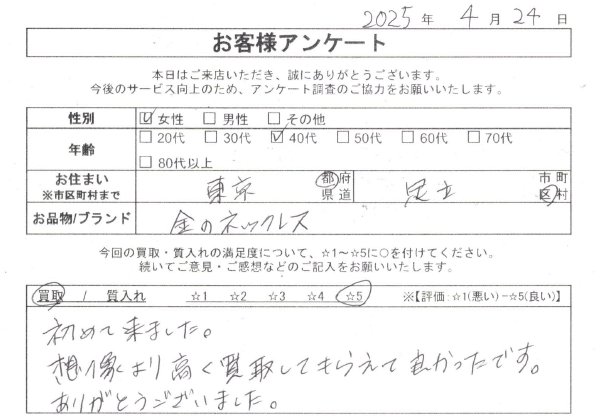 2025年 4月 24日
お客様アンケート
本日はご来店いただき、誠にありがとうございます。
今後のサービス向上のため、アンケート調査のご協力をお願いいたします。
性別 ☑女性 □男性 □その他
年齢 □20代 □30代 ☑40代 □50代 □60代 □70代
□80代以上
お住まい ※市区町村まで 東京 都府県道 足立 市町区村
お品物/ブランド 金のネックレス
今回の買取・質入れの満足度について、☆1～☆5に○を付けてください。
続いてご意見・ご感想などのご記入をお願いいたします。
買取 / 質入れ ☆1 ☆2 ☆3 ☆4 ☆5 ※【評価:☆1(悪い)－☆5(良い)】
初めて来ました。
想像より高く買取してもらえて良かったです。
ありがとうございました。